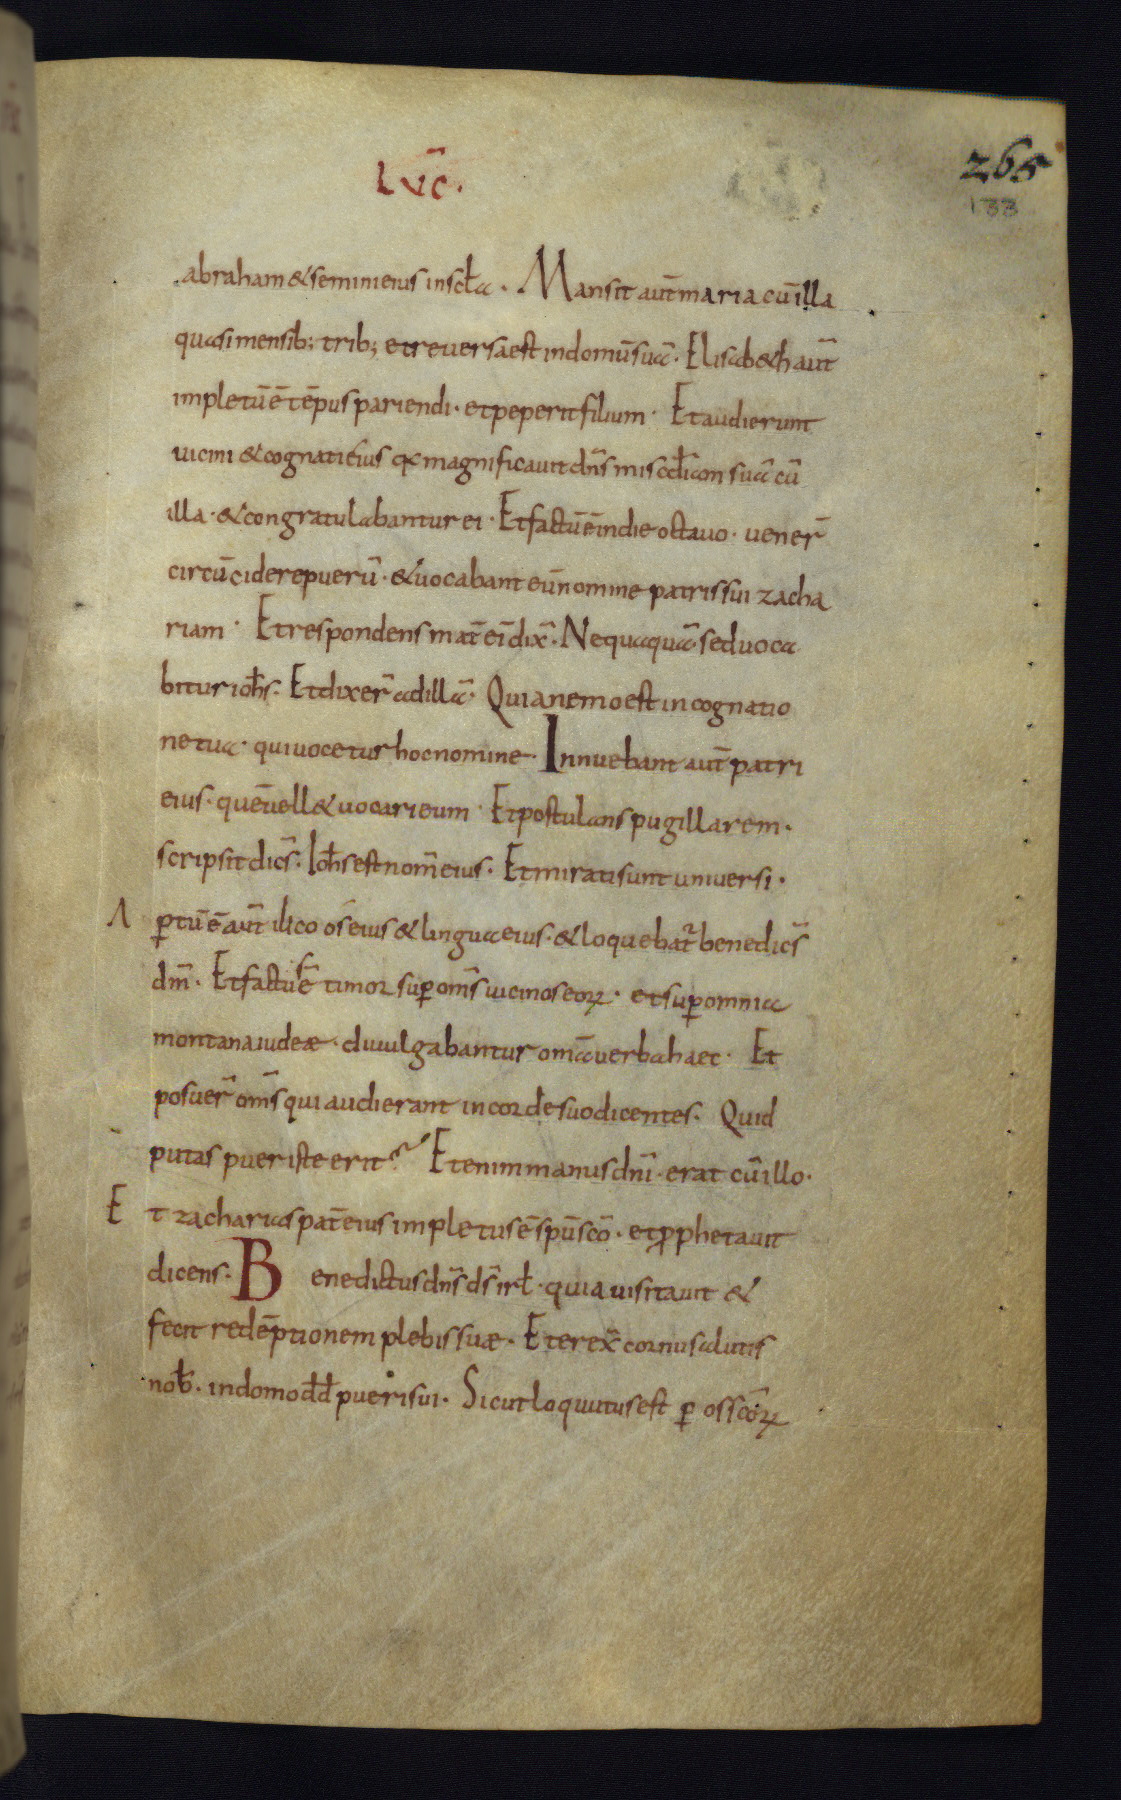 LVC̄.
265
133
abraham & semini eius in scl̄a. Mansit aut̄ maria cū illa
quasi mensib; trib; et reversa est in domū suā. Elisab&h aut̄
impletū ē tēpus pariendi. et peperit filium. Et audierunt
vicini & cognati eius q̄ magnificavit dn̄s miscdīam suā cū
illa. & congratulabantur ei. Et factū ē in die octavo. vener̄
circūcidere puerū. & vocabant eū nomine patris sui zacha
riam. Et respondens mat̄ ei dix̄. Nequaquā. sed voca
bitur ioh̄s. Et dixer̄ ad illā. Quia nemo est in cognatio
ne tua. qui vocetur hoc nomine. Innuebant aut̄ patri
eius. quē vell& vocari eum. Et postulans pugillarem.
scripsit dic̄s. Ioh̄s est nom̄ eius. Et mirati sunt universi.
A ꝑtū ē aut̄ ilico os eius & lingua eius. & loquebat̄ benedic̄s
dm̄. Et factus ē timor suꝑ om̄s vicinos eoꝝ. et suꝑ omnia
montana iudeæ. divulgabantur om̄a verba haec. Et
posuer̄ om̄s qui audierant in corde suo dicentes. Quid
putas puer iste erit? Etenim manus dn̄i. erat cū illo.
E t zacharias pat̄ eius impletus ē sp̄u scō. et ꝓphetavit
dicens. Benedictus dn̄s ds̄ isrl̄. quia visitavit &
fecit redēptionem plebis suæ. Et erex̄ cornu salutis
nob̄. in domo dd̄ pueri sui. Sicut loquutus est ꝑ os scōꝝ